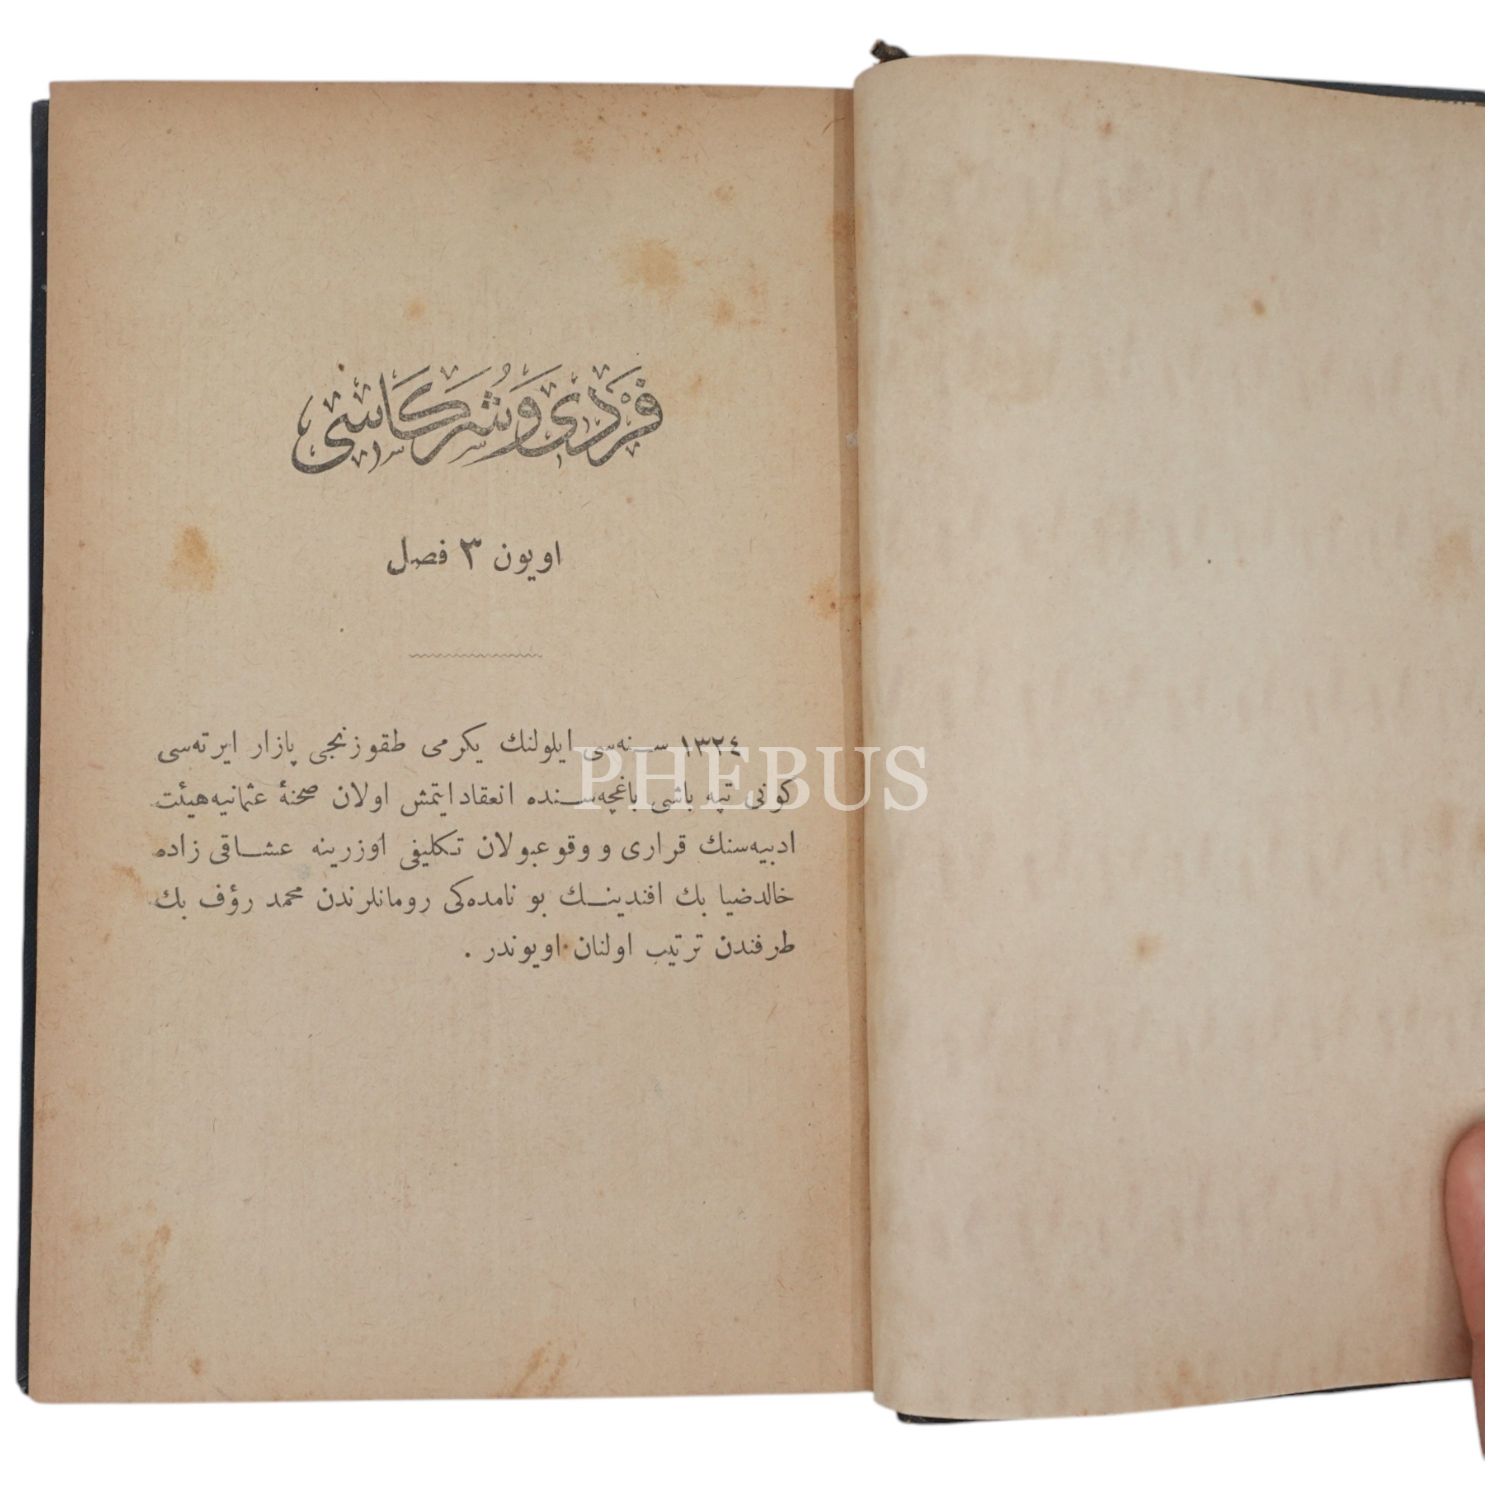 فردی و شرکاسی
اویون ۳ فصل
۱۳۲٤ سنه‌سی ایلولنك یکرمی طقوزنجی پازار ایرته‌سی
کونی تپه باشی باغچه‌سنده انعقاد ایتمش اولان صحنۀ عثمانیه هیئت
ادبیه‌سنك قراری و وقوعبولان تکلیفی اوزرینه عشاقی زاده
خالد ضیا بك افندینك بو نامده‌کی رومانلرندن محمد رؤف بك
طرفندن ترتیب اولنان اویوندر .
PHEBUS